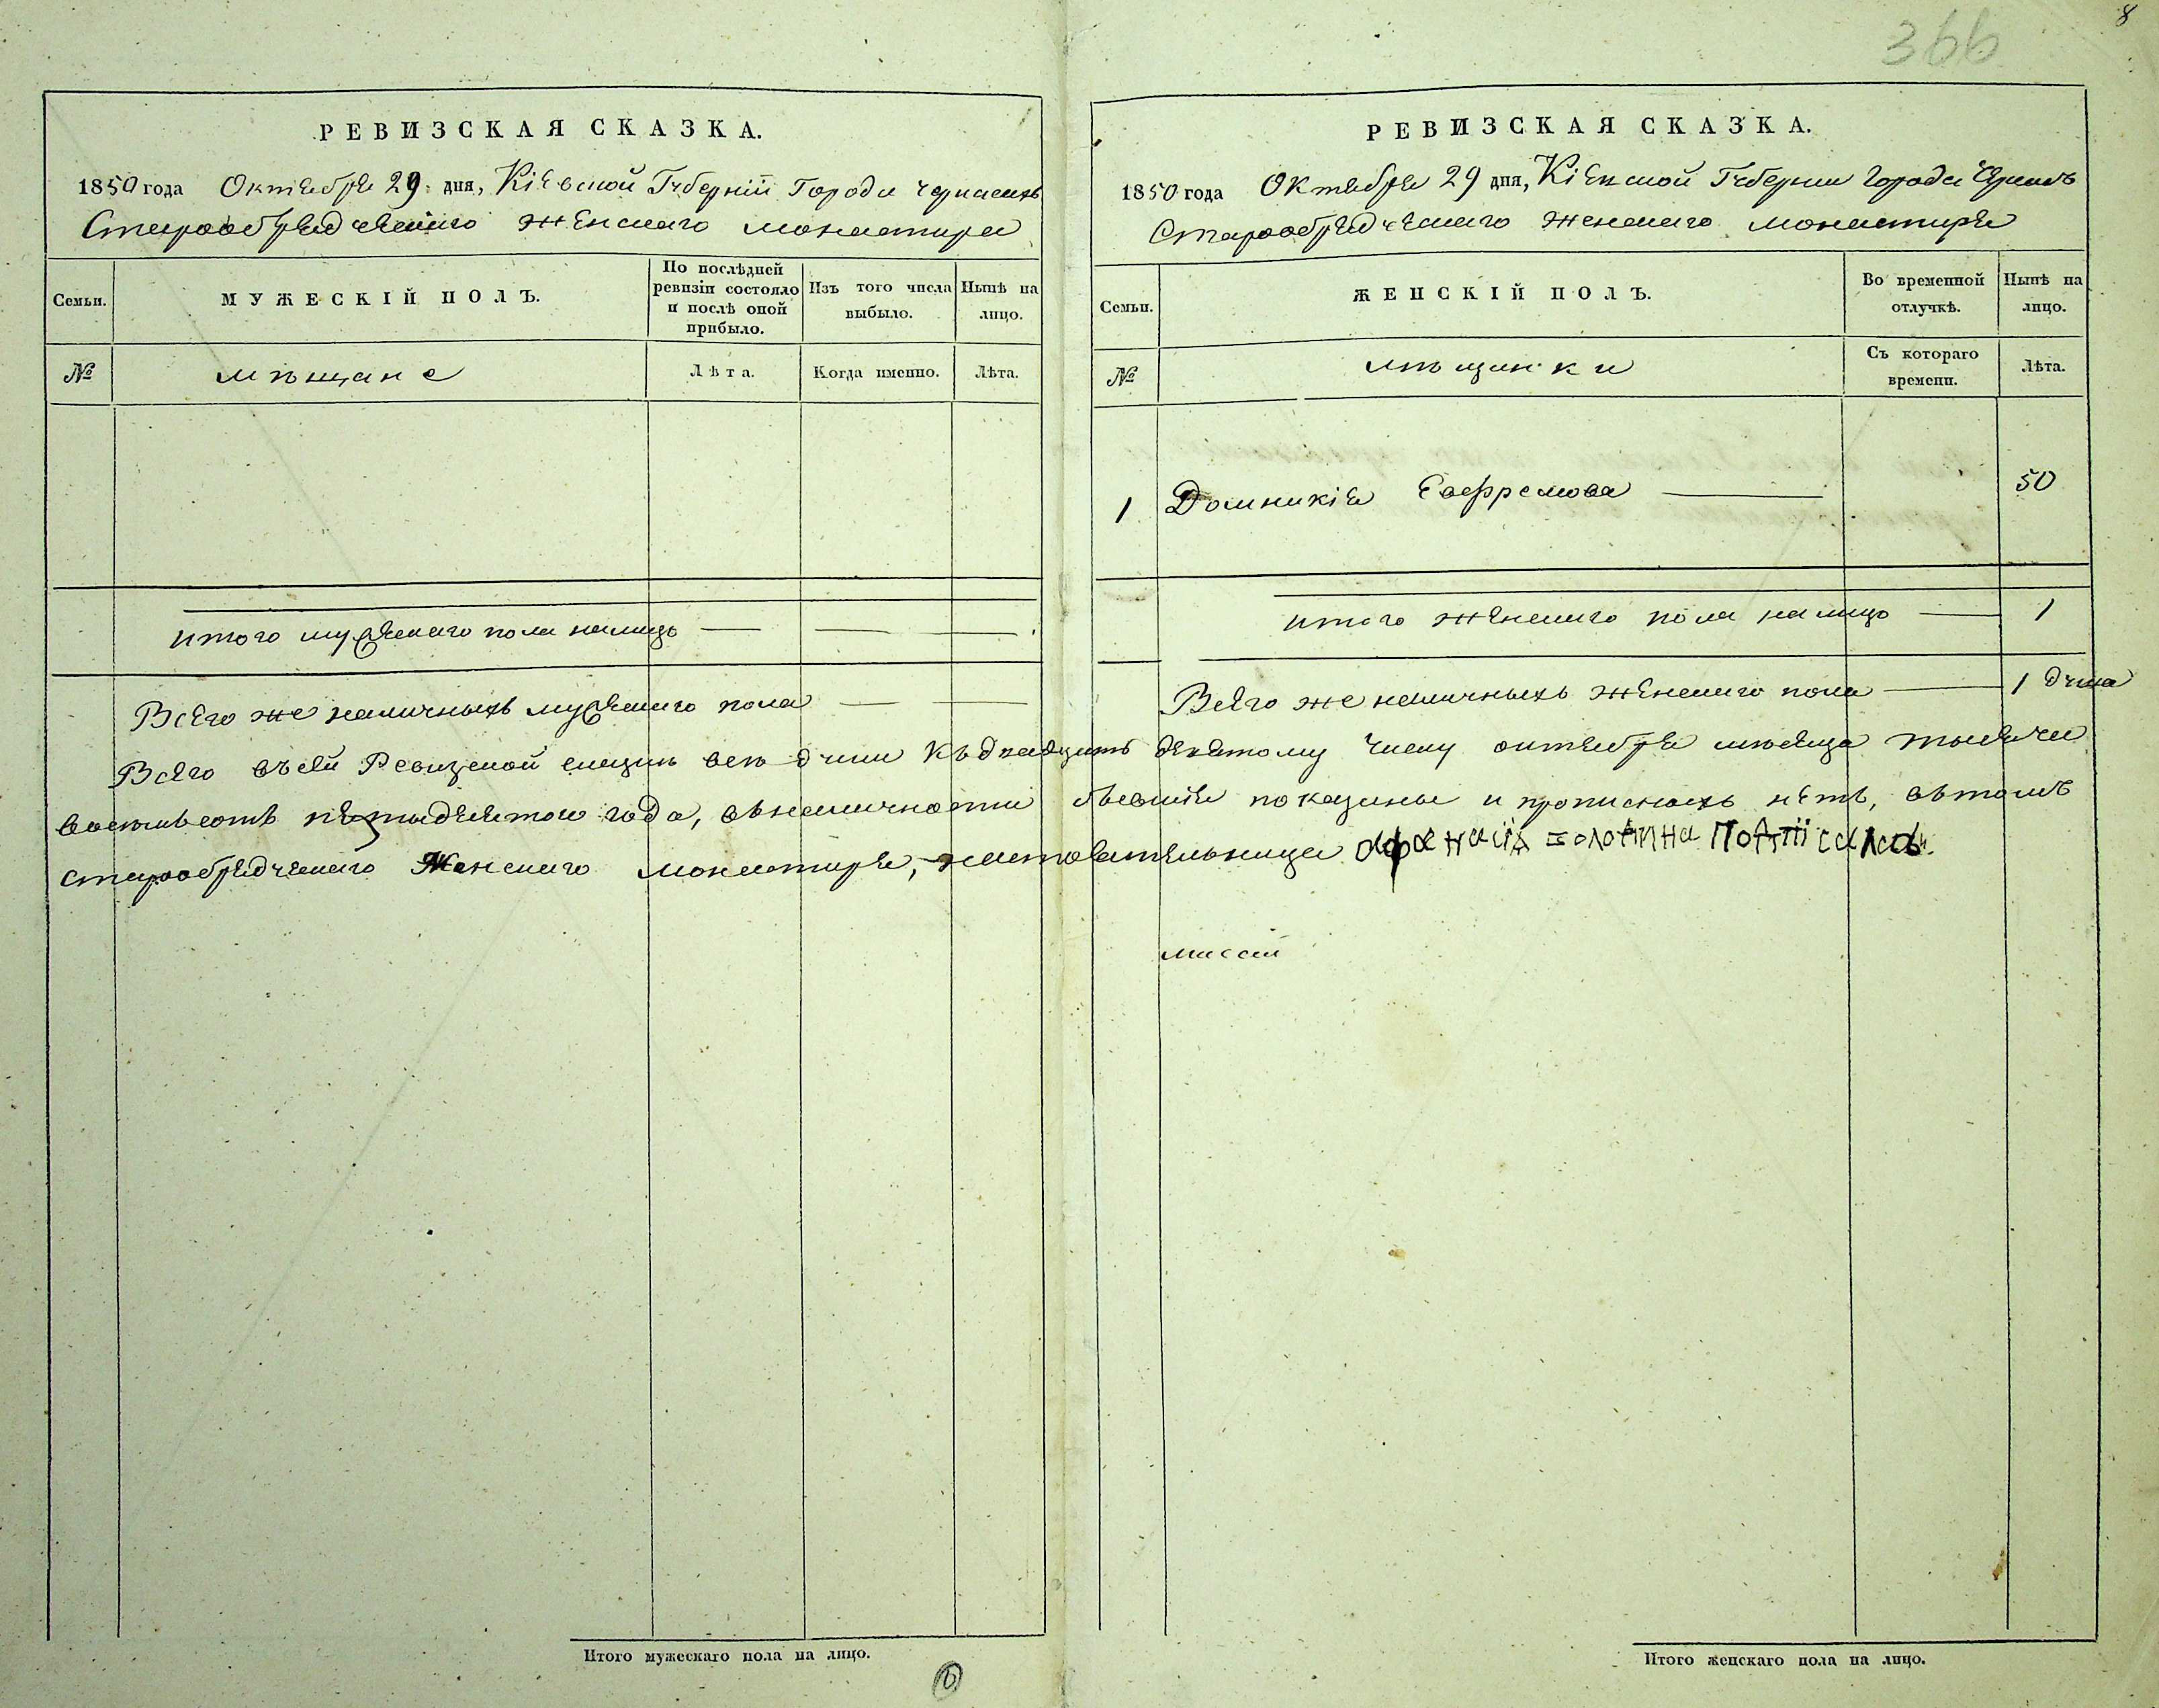 366
8
РЕВИЗСКАЯ СКАЗКА.
1850 года Октября 29. дня, Кіевской Губерніи Города Черкасъ
Старообрядческаго Женскаго монастыря
Семьи.
МУЖЕСКІЙ ПОЛЪ.
По послѣдней ревизіи состояло и послѣ оной прибыло.
Изъ того числа выбыло.
Нынѣ на лицо.
№
мѣщане
Лѣта.
Когда именно.
Лѣта.
итого мужескаго пола налицо
Всего же наличныхъ мужескаго пола
РЕВИЗСКАЯ СКАЗКА.
1850 года Октября 29 дня, Кіевской Губернии Города Черкасъ
Старообрядческаго женскаго монастыря
Семьи.
ЖЕНСКІЙ ПОЛЪ.
Во временной отлучкѣ.
Нынѣ на лицо.
№
мѣщанки
Съ котораго времени.
Лѣта.
1 Домникія Евфремова 50
итого женскаго пола налицо 1
Всего же наличныхъ женскаго пола 1 душа
Всего въ сей Ревизской сказки всѣ души къ двадцать девятому числу октября мѣсяца тысяча
восемьсотъ пятидесятого года, въ наличности бывшія показаны и прописныхъ нетъ, въ томъ
старообрядческаго Женскаго монастыря, настоятельница афанасія подпісалась.
Итого мужескаго пола на лицо.
Итого женскаго пола на лицо.